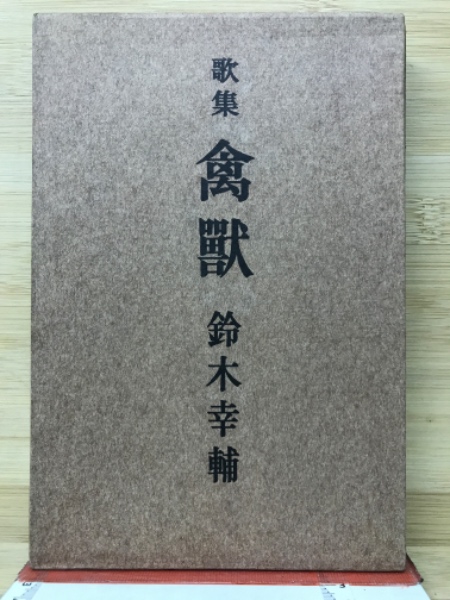 歌集 禽獸 鈴木幸輔